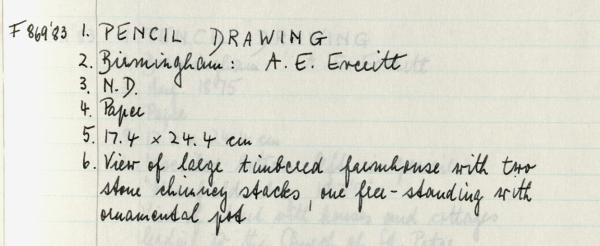 F869'83 1. PENCIL DRAWING
2. Birmingham: A. E. Everitt
3. N.D.
4. Paper
5. 17.4 x 24.4 cm
6. View of large timbered farmhouse with two
stone chimney stacks, one free-standing with
ornamental pot